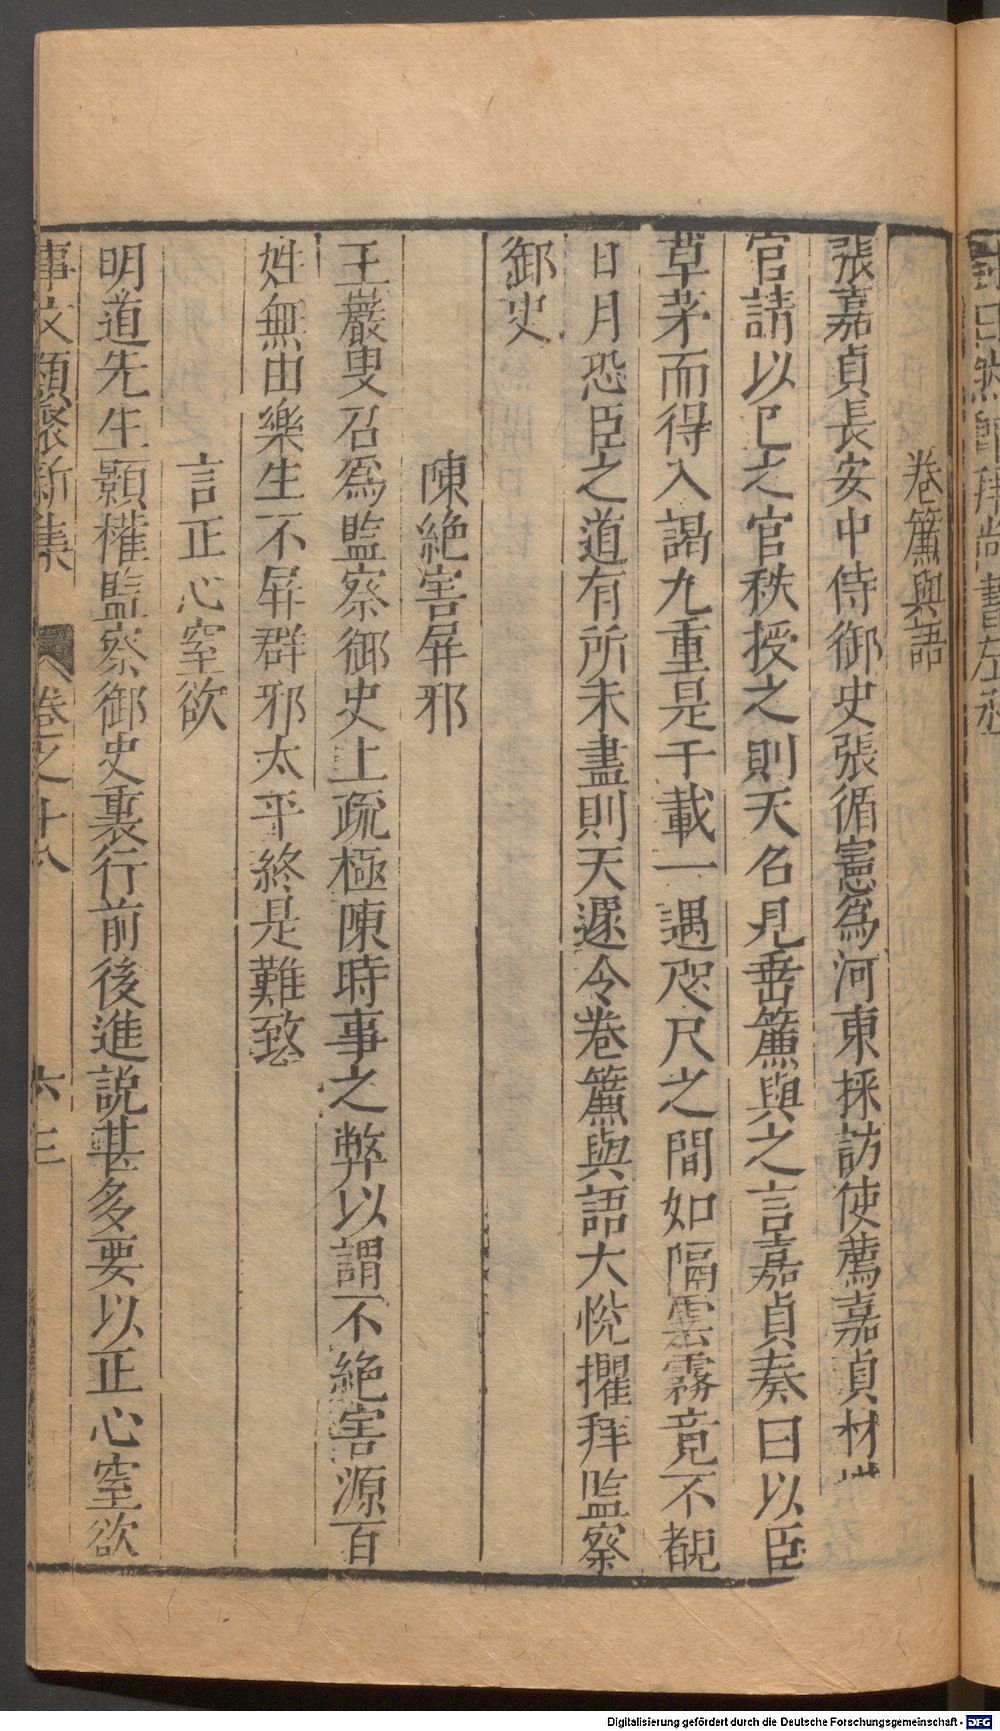 卷簾與語
張嘉貞長安中侍御史張循憲為河東採訪使薦嘉貞材堪
官請以已之官秩授之則天名見垂簾與之言嘉貞奏曰以臣
草茅而得入謁九重是千載一遇咫尺之間如隔雲霧竟不覩
日月恐臣之道有所未盡則天遽令卷簾與語大悅擢拜監察
御史
陳絕害屏邪
王巖叟召為監察御史上疏極陳時事之弊以謂不絕害源百
姓無由樂生不屏群邪太平終是難致
言正心窒欲
明道先生顥權監察御史裏行前後進說甚多要以正心窒欲
事文類聚新集 卷之十八 六三
Digitalisierung gefördert durch die Deutsche Forschungsgemeinschaft - DFG